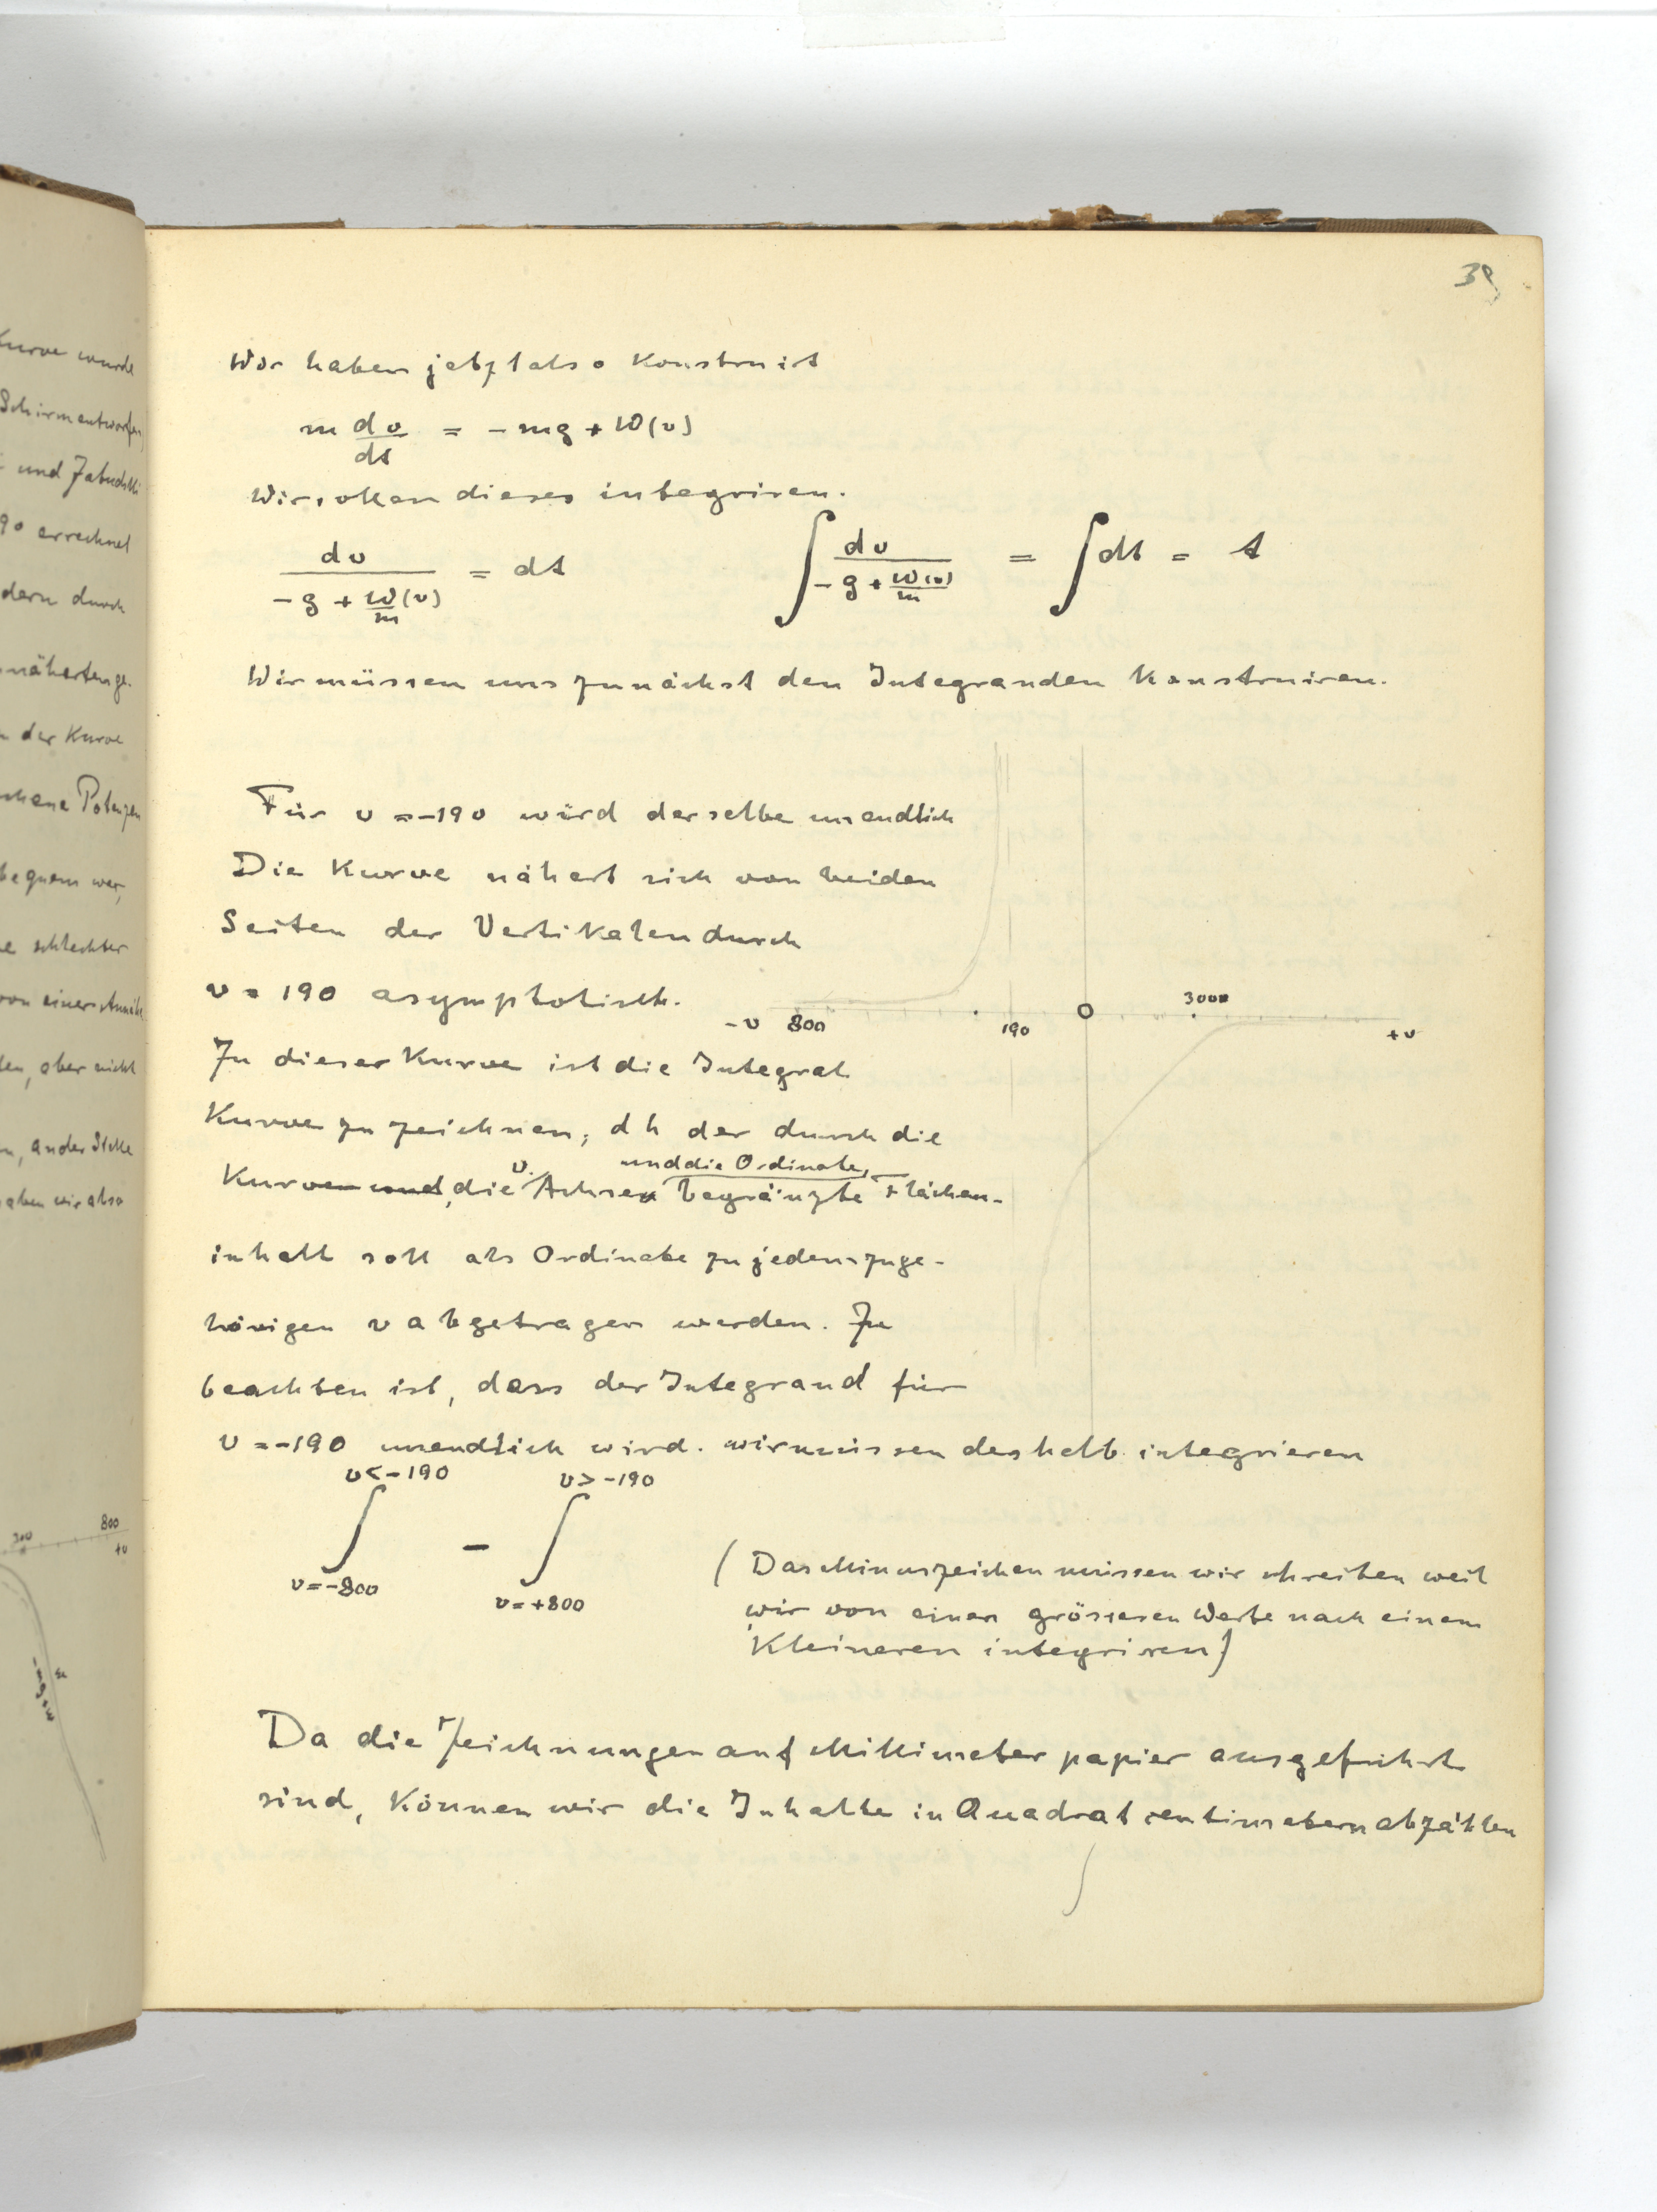 39
Wir haben jetzt also Konstruirt
m dv/dt = - mg + W(v)
Wir sollen dieses integriren.
dv / (- g + W/m (v)) = dt ∫ dv / (- g + W(v)/m) = ∫dt = t
Wir müssen uns zunächst den Integranden Konstruiren.
Für v = -190 wird derselbe unendlich
Die Kurve nähert sich von beiden
Seiten der Vertikalen durch
v = 190 asymptotisch.
-v 800 190 0 300 +v
Zu dieser Kurve ist die Integral
Kurve zu zeichnen, d h der durch die
und die Ordinate,
Kurve und, die v. Achse begränzte Flächen-
inhalt soll als Ordinate zu jedem zuge-
hörigen v abgetragen werden. Zu
beachten ist, dass der Integrand für
v = -190 unendlich wird. wir müssen deshalb integrieren
v < -190 v > -190
∫ - ∫
v = -800 v = +800
( Das Minuszeichen müssen wir schreiben weil
wir von einem grösseren Werte nach einem
Kleineren integriren)
Da die Zeichnungen auf Millimeter papier ausgeführt
sind, Können wir die Inhalte in Quadrat centimetern abzählen
Kurve wurde
Schirm entworfen
und
90 errechnet
dern durch
näherten ge-
der Kurve
Potenzen
bequem
schlechter
von einer
aber nicht
an der Stelle
haben wir also
300 800
+v